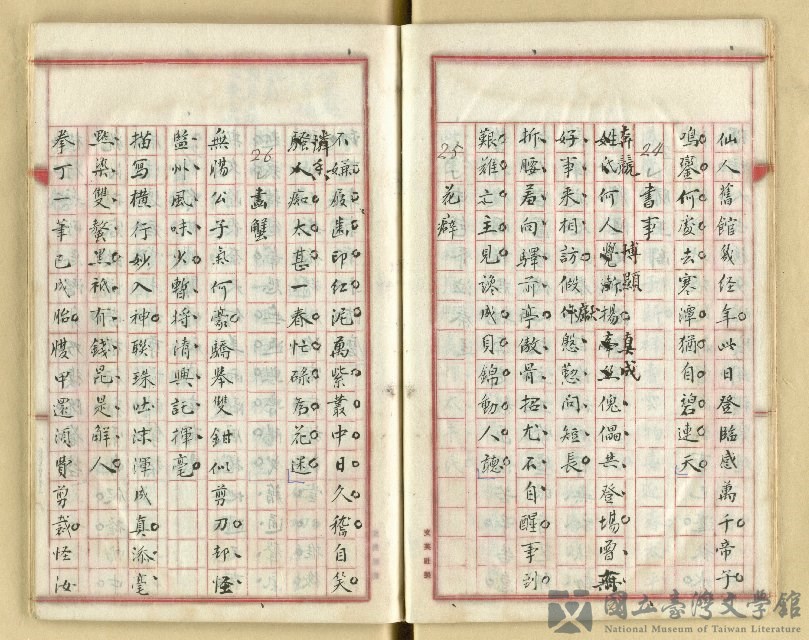 仙人舊館幾經年此日登臨感萬千帝子
鳴鑾何處去寒潭猶自碧連天
24 書事
奔競 博顯 真成
姓氏何人覺漸揚 傀儡共登場曾無
好事來相訪假作慇懃問短長 獻
折腰羞向驛前亭傲骨招尤不自醒事到
艱難亡主見讒成貝錦動人聽
25 花癖
不嫌屐齒印紅泥萬紫叢中日久稽自笑
騷人痴太甚一春忙碌為花迷
26 畫蟹
無腸公子氣何豪驕舉雙鉗似剪刀却怪
監州風味少暫將清興託揮毫
描寫橫行妙入神聯珠吐沫渾成真添毫
點染雙螯黑祇有錢昆是解人
拳丁一筆已成胎擐甲還須費剪裁怪汝
國立臺灣文學館
National Museum of Taiwan Literature